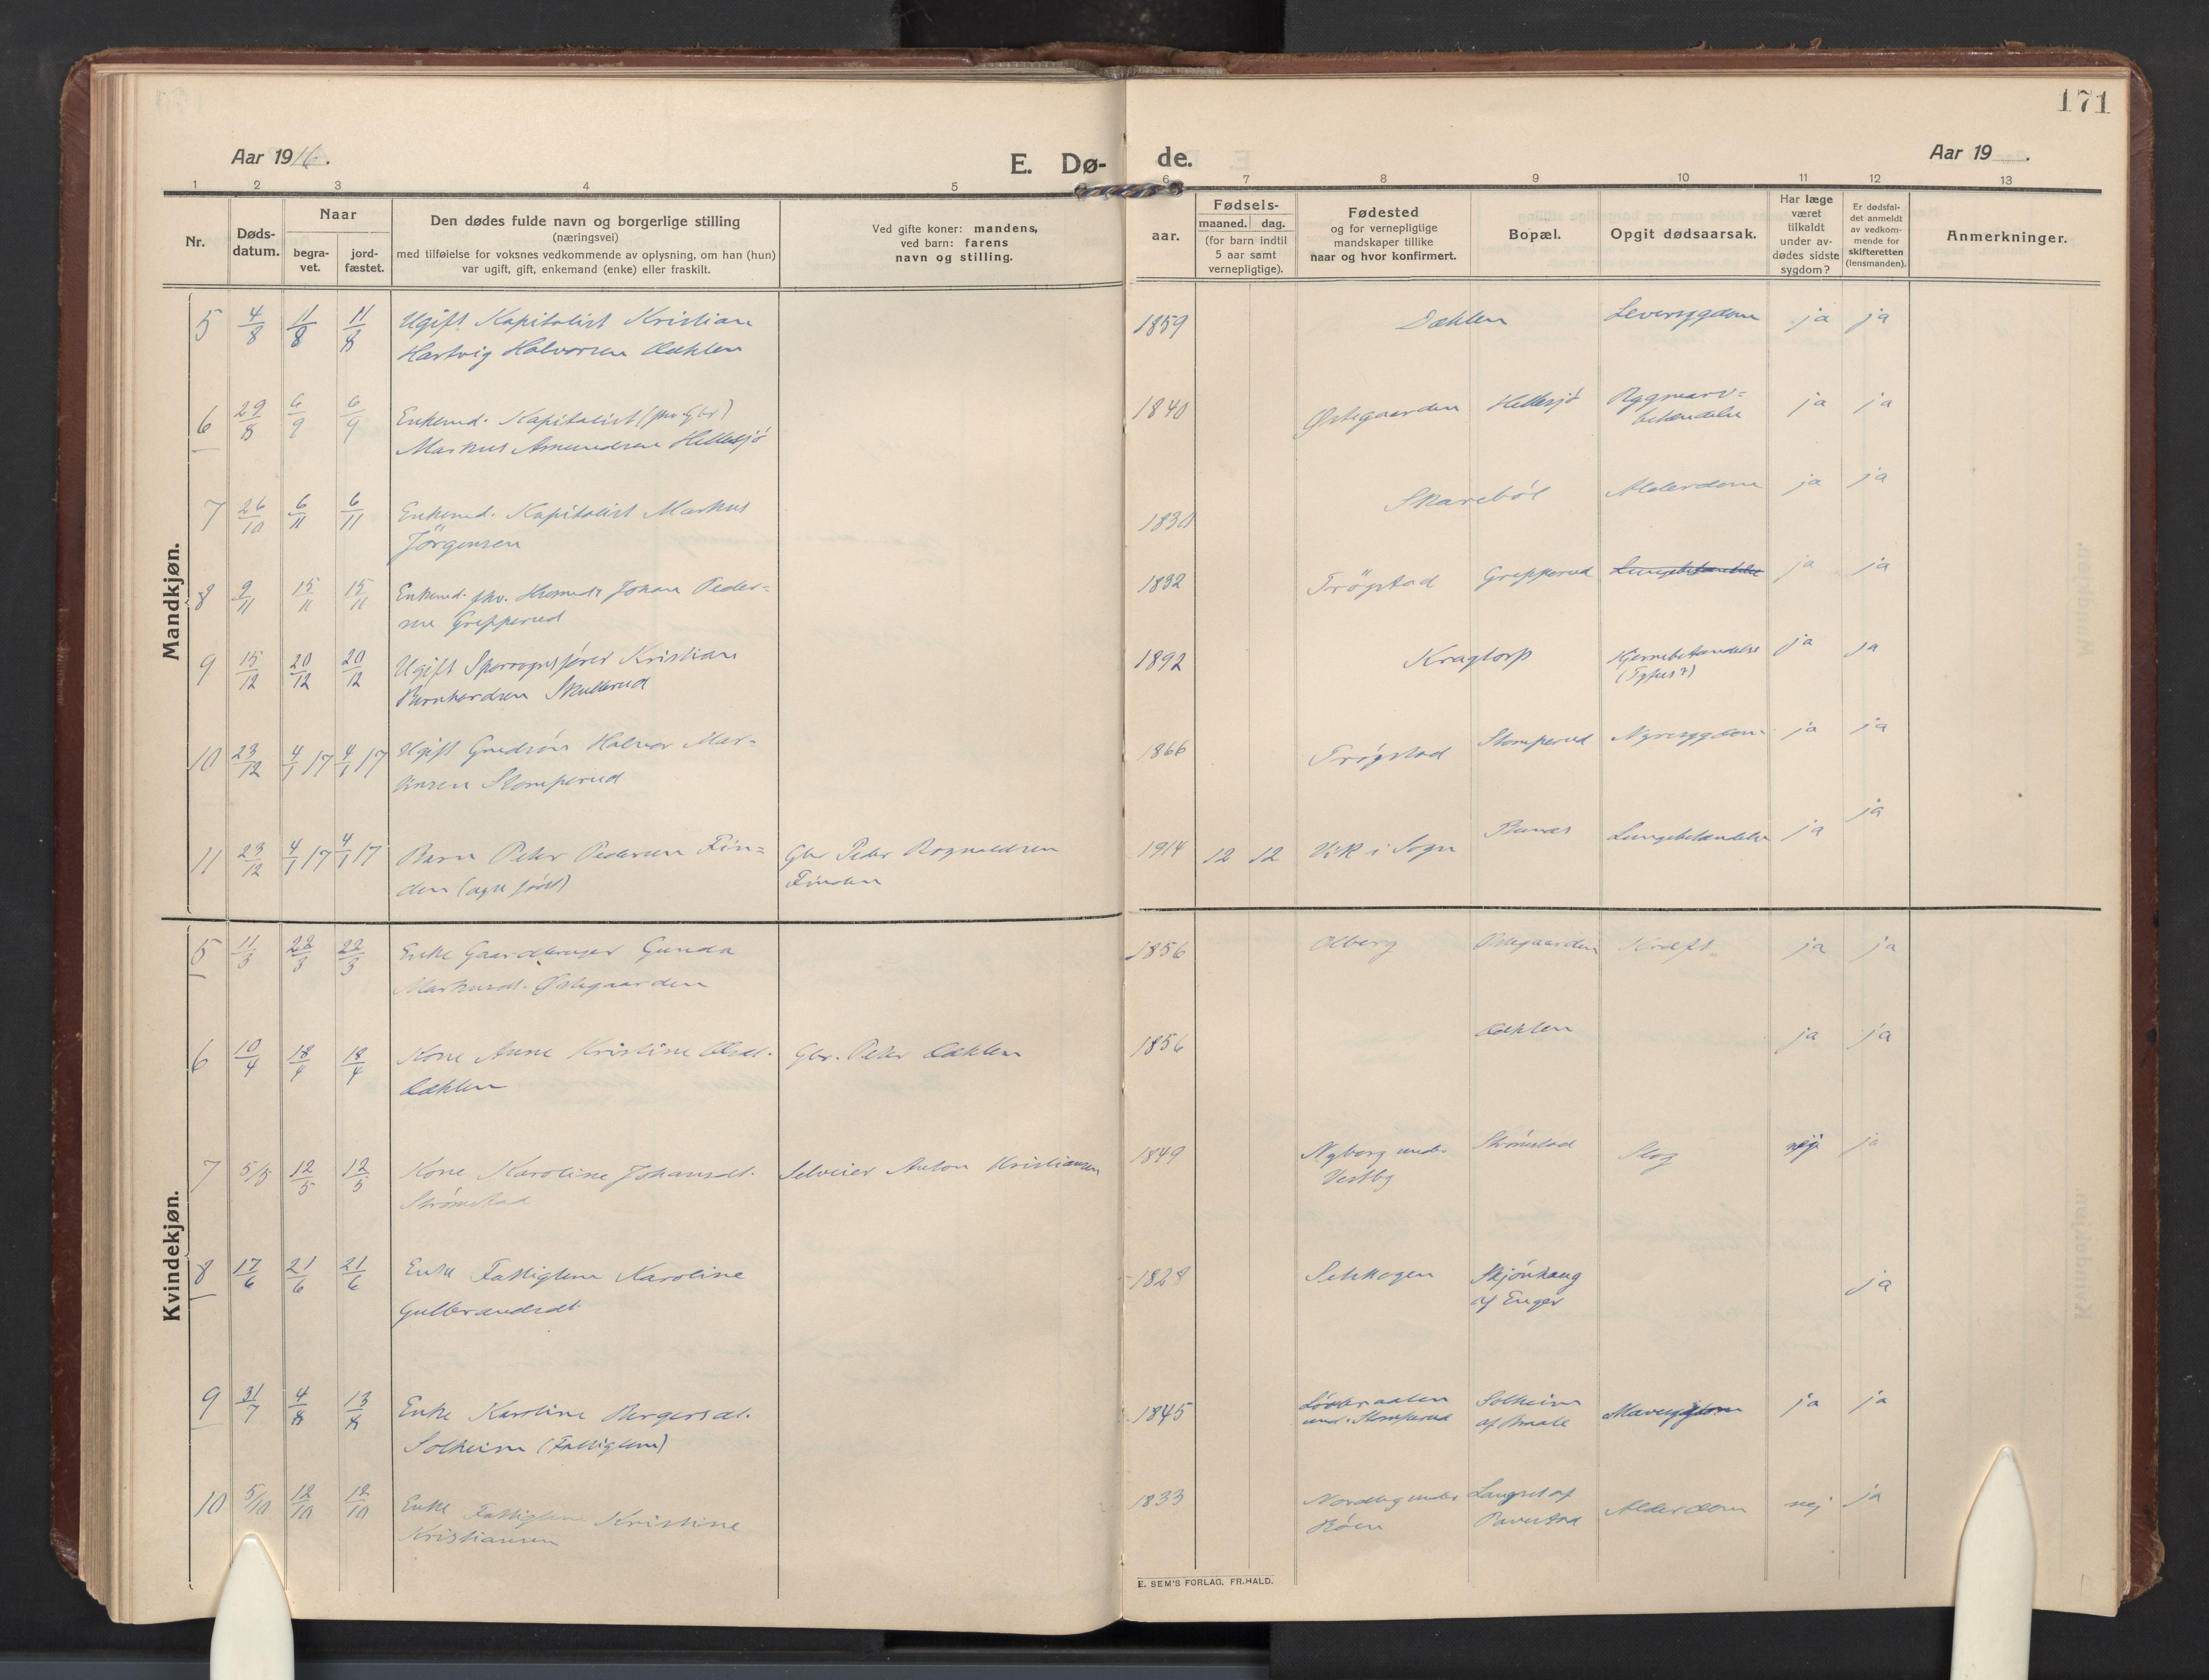 171
Aar 1916.
E. Dø-
de.
Aar 19 .
1 2 3 4 5 6 7 8 9 10 11 12 13
Nr.
Døds-
datum.
Naar
begra-
vet.
jord-
fæstet.
Den dødes fulde navn og borgerlige stilling
(næringsvei)
med tilføielse for voksnes vedkommende av oplysning, om han (hun)
var ugift, gift, enkemand (enke) eller fraskilt.
Ved gifte koner: mandens,
ved barn: farens
navn og stilling.
Fødsels-
aar.
maaned. dag.
(for barn indtil
5 aar samt
vernepligtige).
Fødested
og for vernepligtige
mandskaper tillike
naar og hvor konfirmert.
Bopæl.
Opgit dødsaarsak.
Har læge
været
tilkaldt
under av-
dødes sidste
sygdom?
Er dødsfal-
det anmeldt
av vedkom-
mende for
skifteretten
(lensmanden).
Anmerkninger.
Mandkjøn.
5 4/8 11/8 11/8 Ugift Kapitalist Kristian 1859 Dæhlen Leversygdom ja ja
Hartvig Halvorsen Dæhlen
6 29/8 6/9 6/9 Enkemd. Kapitalist (fhv. Gbr) 1840 Østegaarden Hellesjø Rygmarv- ja ja
Markus Amundsen Hellesjø betændelse
7 26/10 6/11 6/11 Enkemd. Kapitalist Markus 1830 Skarebøl Alderdom ja ja
Jörgensen
8 9/11 15/11 15/11 Enkemd. fhv. Husmd. Johan Peder- 1832 Trögstad Grepperud Lungebetændelse ja ja
sen Grepperud
9 15/12 20/12 20/12 Ugift Sporvognsfører Kristian 1892 Kragtorp Hjernebetændelse ja ja
Bernhardsen Skullerud (Tyfus?)
10 23/12 4/1 17 4/1 17 Ugift Halvor Mar- 1866 Trøgstad Slomperud Nyresygdom ja ja
tinsen Slomperud
11 23/12 4/1 17 4/1 17 Barn Peter Pedersen Fin- Gbr Peder Rognaldsen 1914 12 12 Vik i Sogn Lungebetændelse ja ja
den (egte født) Finden
Kvindekjøn.
5 11/3 22/3 22/3 Enke Gaardbruger Gunda 1856 Olberg Østegaarden Kræft ja ja
Markusdt. Østegaarden
6 10/4 18/4 18/4 Kone Anne Kristine Olsdt. Gbr. Peter Dæhlen 1856 Dæhlen ja ja
Dæhlen
7 5/5 12/5 12/5 Kone Karoline Johansdt. Selveier Anton Kristiansen 1849 Nyborg under Strømstad Slag nej ja
Strømstad Vestby
8 17/6 21/6 21/6 Enke Fattiglem Karoline 1828 Selskogen Skjønhaug ja
Gulbrandsdt. af Enger
9 31/7 4/8 13/8 Enke Karoline Bergersdt. 1845 Solheim Mavesygdom ja ja
Solheim (Fattiglem) und. Slomperud af Braate
10 5/10 12/10 12/10 Enke Fattiglem Kristine 1833 Nordby under Langset af Alderdom nej ja
Kristiansen
E. SEM'S FORLAG, FR.HALD.